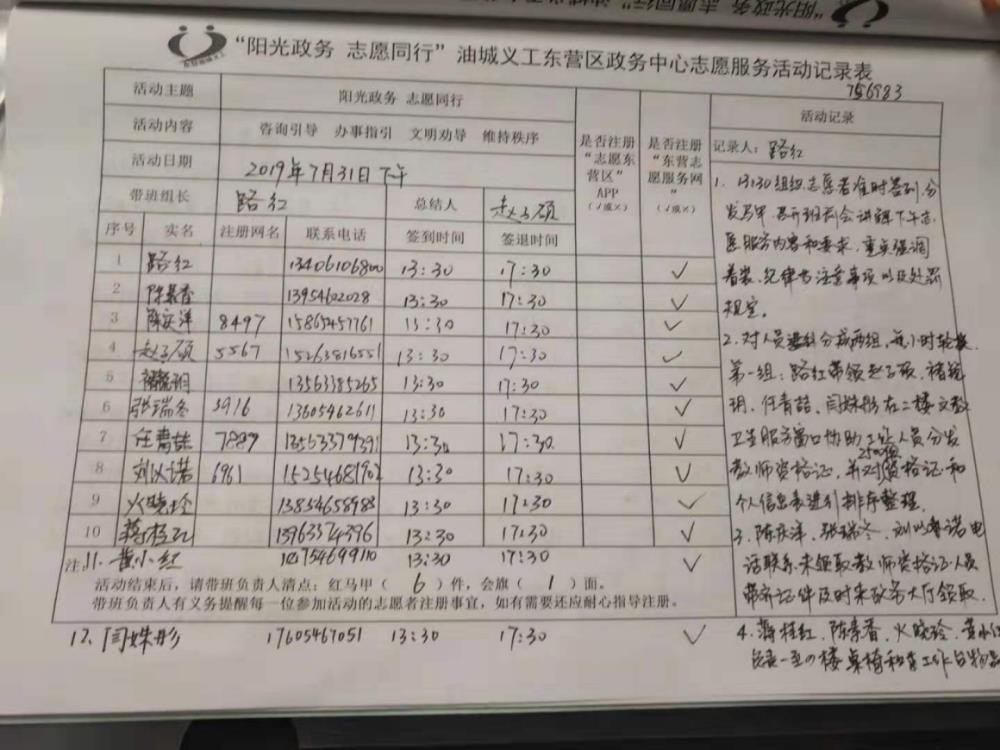 "阳光政务 志愿同行"油城义工东营区政务中心志愿服务活动记录表
756983
活动主题 阳光政务 志愿同行
活动内容 咨询引导 办事指引 文明劝导 维持秩序
活动日期 2019年7月31日下午
带班组长 路红 总结人 赵子硕
是否注册"志愿东营区"APP(√或×)
是否注册"东营志愿服务网"(√或×)
序号 实名 注册网名 联系电话 签到时间 签退时间
1 路红 13406106800 13:30 17:30 √
2 陈景香 13954622028 13:30 17:30 √
3 陈庆洋 8497 15865457761 13:30 17:30 √
4 赵子硕 5567 15263816551 13:30 17:30 √
5 13563385265 13:30 17:30 √
6 张瑞冬 3916 13605462611 13:30 17:30 √
7 任青喆 7889 13:30 17:30 √
8 刘以诺 6961 13:30 17:30 √
9 火晓玲 13854658983 13:30 17:30 √
10 蒋桂红 13963374396 13:30 17:30 √
注 11. 黄小红 13:30 17:30 √
活动结束后,请带班负责人清点:红马甲(6)件,会旗(1)面。
带班负责人有义务提醒每一位参加活动的志愿者注册事宜,如有需要还应耐心指导注册。
12. 闫姝彤 17605467051 13:30 17:30 √
活动记录
记录人:路红
1. 13:30组织志愿者准时签到,分
发马甲,召开班前会讲解下午志
愿服务内容和要求,重点强调
着装、纪律与注意事项以及处罚
规定。
2. 对人员分成两组,每小时轮换
第一组:路红带领赵子硕、褚
玥、任青喆、闫姝彤在二楼文教
卫生服务窗口协助工作人员分发
教师资格证,并对2500份资格证和
个人信息表进行排序整理。
3. 陈庆洋、张瑞冬、刘以诺电
话联系未领取教师资格证人员
带齐证件及时来政务大厅领取。
4. 蒋桂红、陈景香、火晓玲、黄小红
一至四楼桌椅和工作台物品